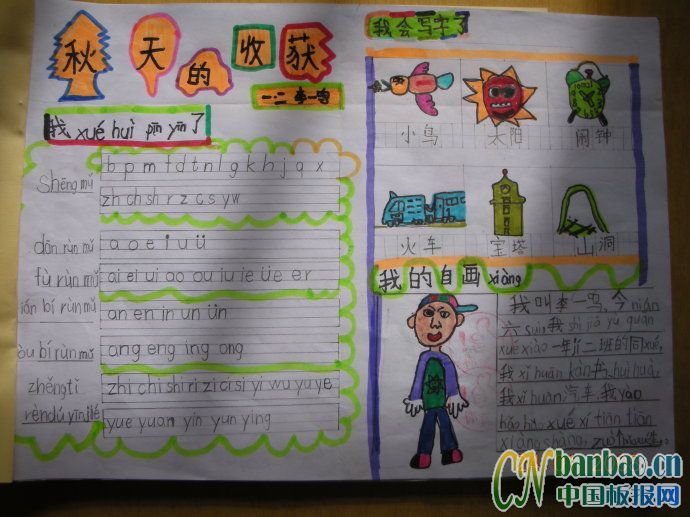 秋天的收获
一·二 李一鸣
我 xué huì pīn yīn 了
Shēng mǔ
b p m f d t n l g k h j q x
zh ch sh r z c s y w
dān rùn mǔ
a o e i u ü
fù rùn mǔ
ai ei ui ao ou iu ie üe er
bí rùn mǔ
an en in un ün
bí rùn mǔ
ang eng ing ong
zhěng tǐ
rèn dú yīn jié
zhi chi shi ri zi ci si yi wu yu ye
yue yuan yin yun ying
我会写字了
小鸟 太阳 闹钟
火车 宝塔 山洞
我的自画 xiàng
我叫李一鸣,今 nián
六 suì,我 shì
xué xiào 一年 jí 二班的同 xué,
我 xǐ huān huì huà,
我 xǐ huān 汽车,我 yào
hǎo hǎo xué xí tiān tiān
xiàng shàng,
CNbanbao.cn
中国板报网